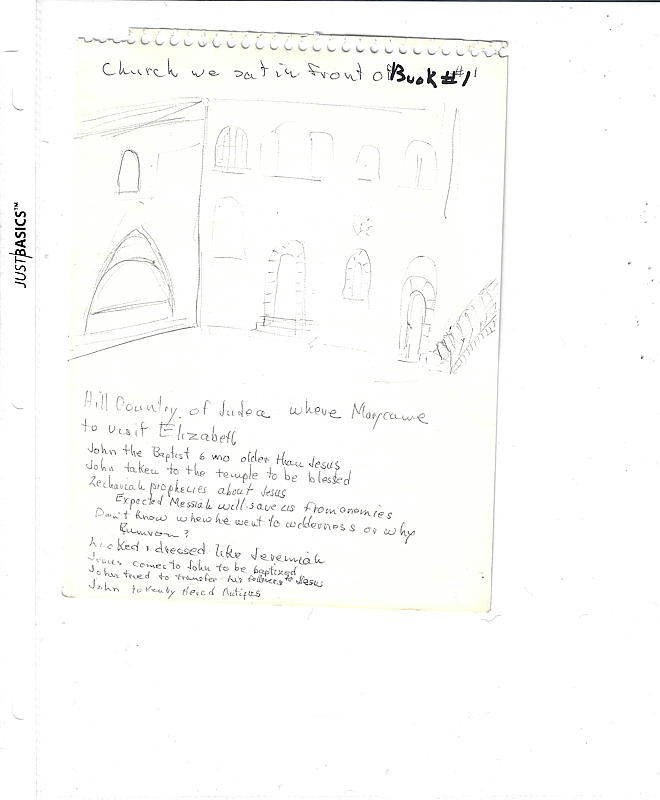 Church we sat in front of Book #1
JUSTBASICS™
Hill Country of Judea where Mary came
to visit Elizabeth
John the Baptist 6 mo older than Jesus
John taken to the temple to be blessed
Zechariah prophecies about Jesus
Expected Messiah will save us from enemies
Don't know when he went to wilderness or why
Kumron?
Looked & dressed like Jeremiah
Jesus comes to John to be baptized
John tried to transfer his followers to Jesus
John taken by Herod Antipas